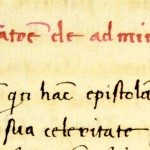 de admi
hac epistola
sua celeritate